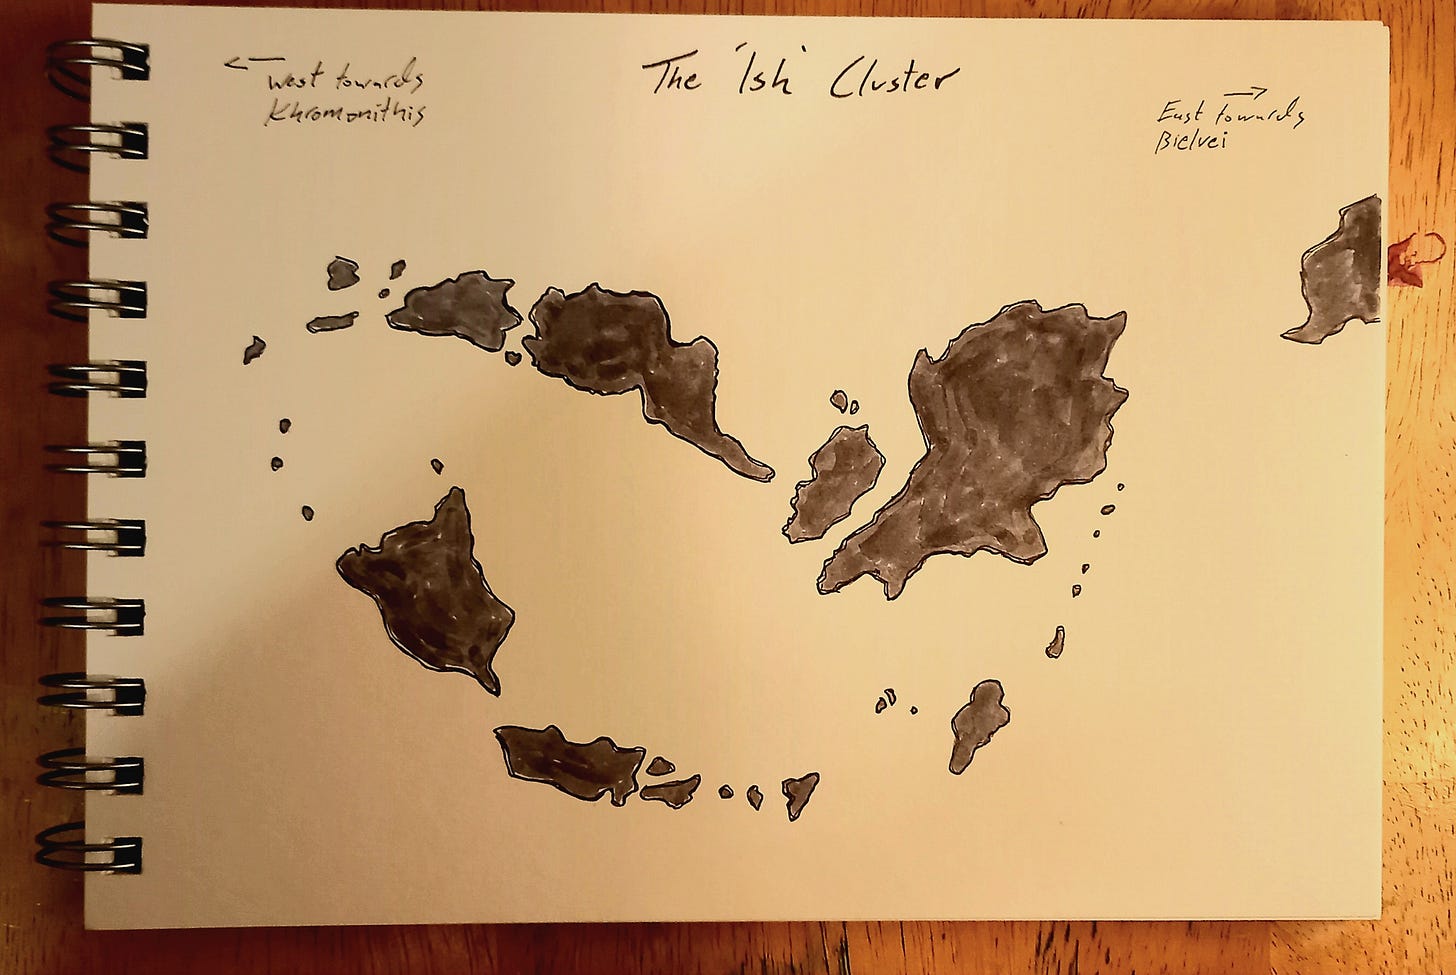 The 'Ish' Cluster
← West towards
Khromonithis
→
East towards
Bielvei